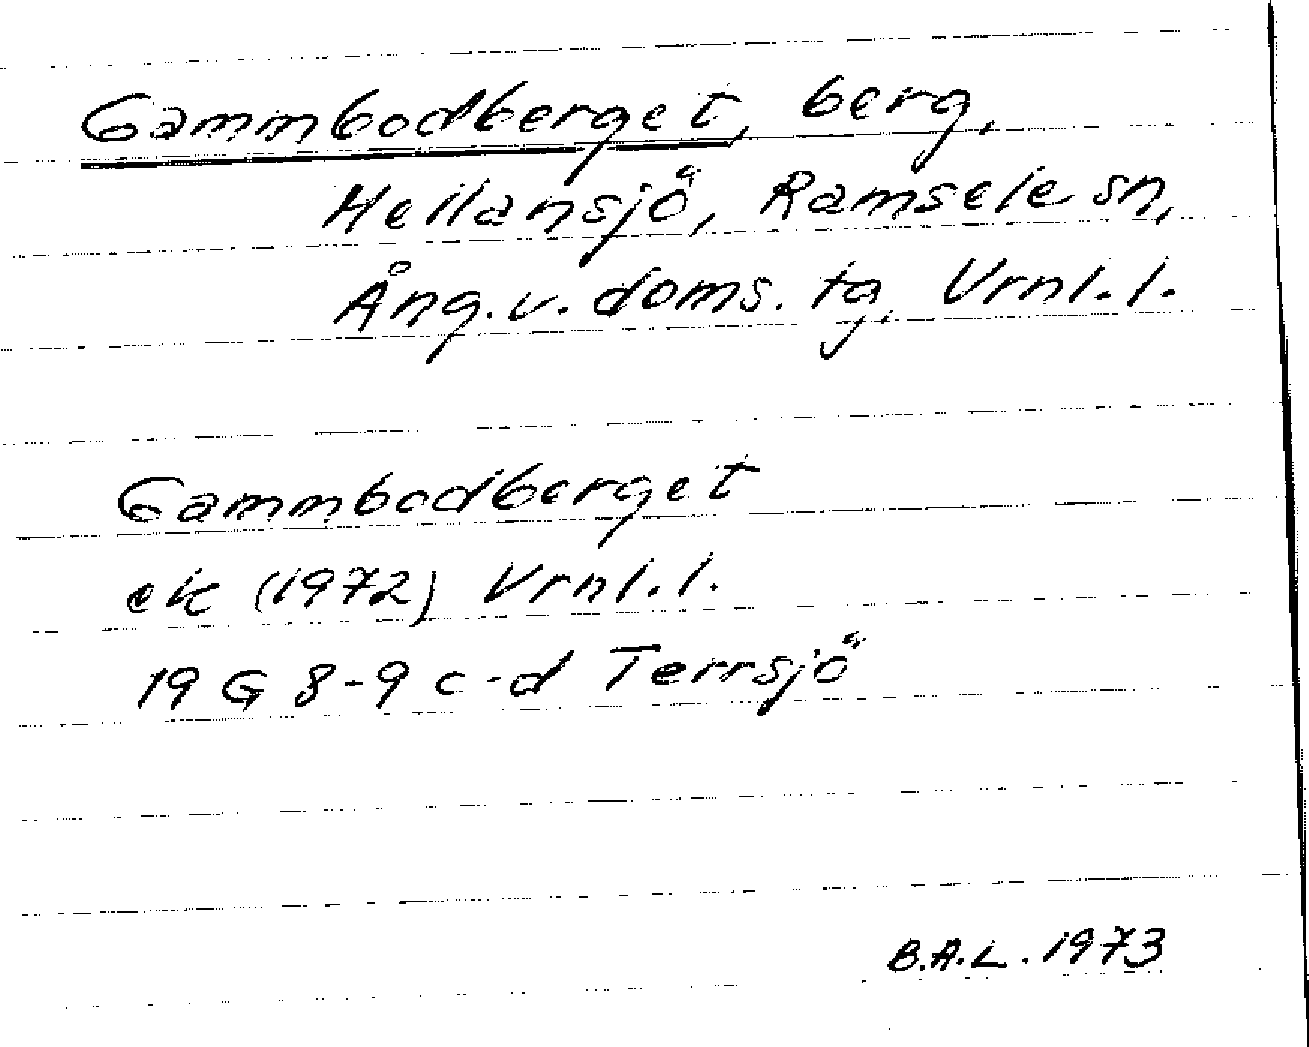 Gammbodberget, berg,
Hellansjö, Ramsele sn,
Ång.v. doms. tg, Vrnl.l.
Gammbodberget
ek (1972) Vrnl.l.
19 G 8-9 c-d Terrsjö
B.A.L. 1973